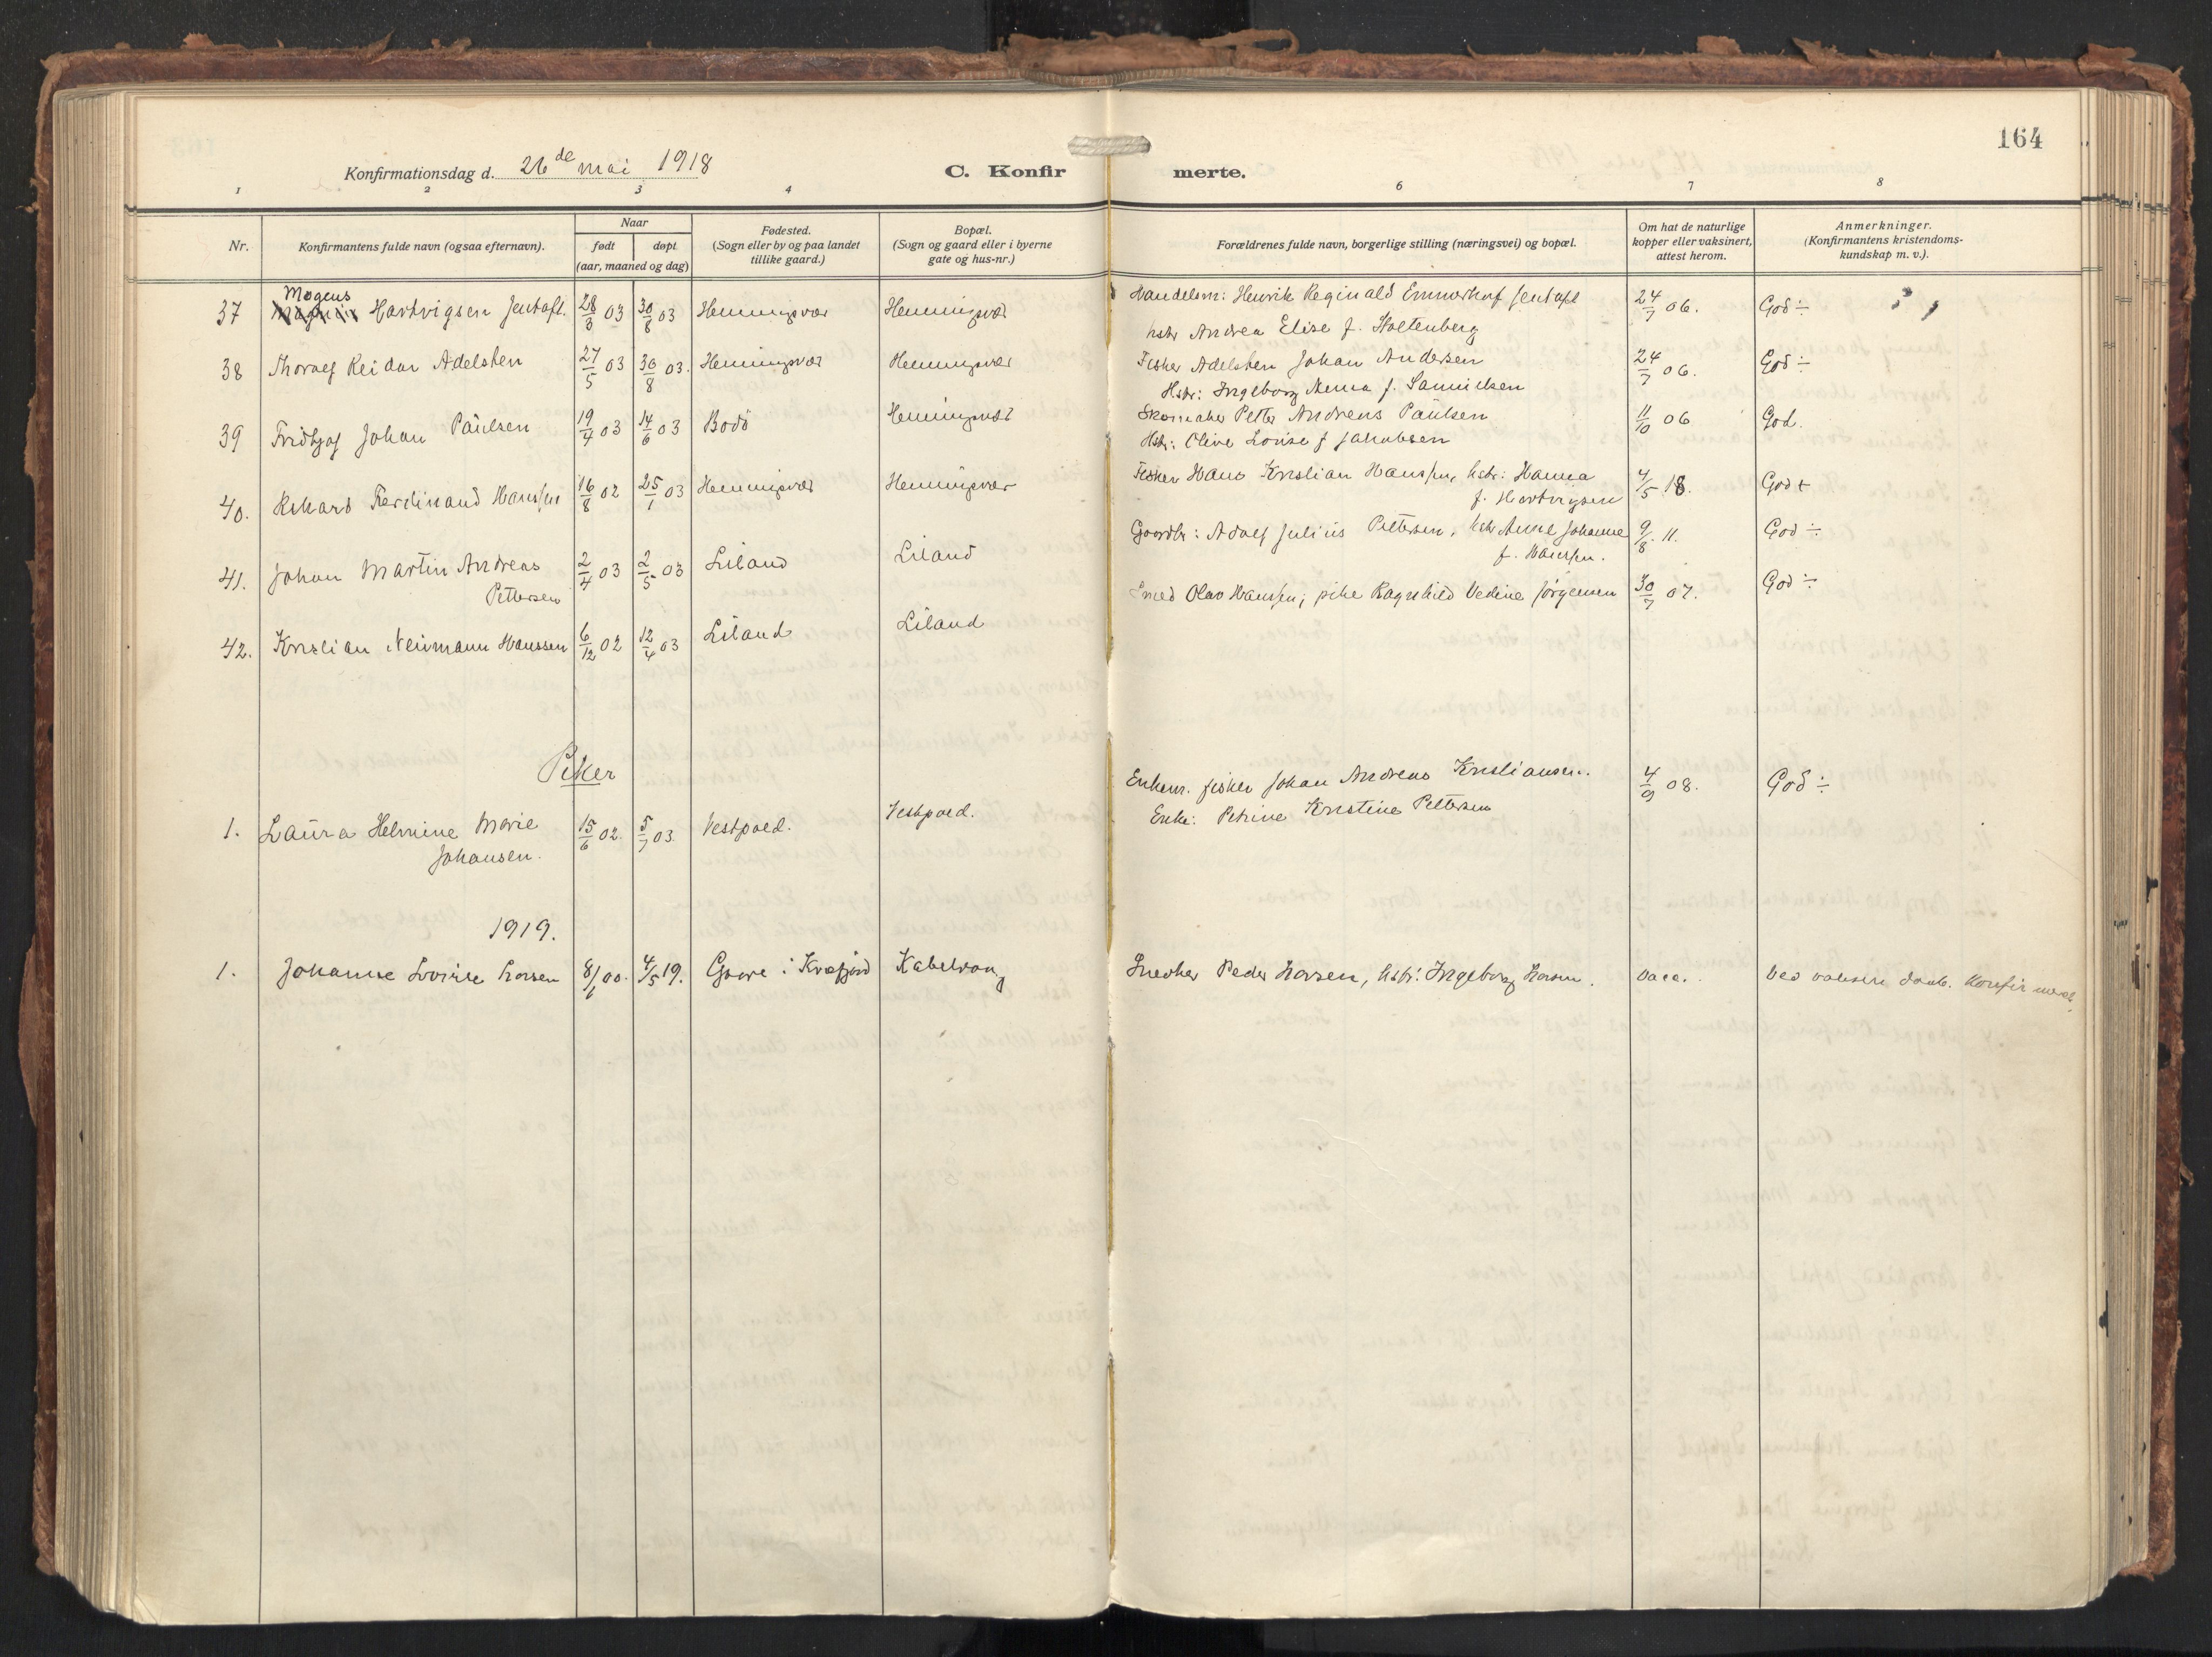 164
Konfirmationsdag d. 26de mai 1918
C. Konfirmerte.
1 2 3 4 6 7 8
Nr.
Konfirmantens fulde navn (ogsaa efternavn).
Naar
født døpt
(aar, maaned og dag)
Fødested.
(Sogn eller by og paa landet
tillike gaard.)
Bopæl.
(Sogn og gaard eller i byerne
gate og hus-nr.)
Forældrenes fulde navn, borgerlige stilling (næringsvei) og bopæl.
Om hat de naturlige
kopper eller vaksinert,
attest herom.
Anmerkninger.
(Konfirmantens kristendoms-
kundskap m. v.).
Mogens
37 Hartvigsen Jentoft. 28/3 03 30/8 03 Henningsvær Henningsvær Handelsm: Henrik Reginald Emmerhof Jentoft 24/7 06. God ÷
hstr Andrea Elise f. Holtenberg
38 Thoralf Reidar Adelsten 27/5 03 30/8 03. Henningsvær Henningsvær Fisker Adelsten Johan Andersen 24/7 06. God ÷
Hstr: Ingeborg f. Samuelsen
39 Fridtjof Johan Paulsen 19/4 03 14/6 03 Bodö Henningsvær Skomaker Petter Andreas Paulsen 11/10 06 God.
Hstr: Oline Lovise f Jakobsen
40. Rikard Ferdinand Hanssen 16/8 02 25/1 03 Henningsvær Henningsvær Fisker Hans Kristian Hanssen, hstr: Hanna 4/5 18. God +
f. Hartvigsen
41. Johan Martin Andreas 2/4 03 2/5 03 Liland Liland Gaardbr: Adolf Julius Pettersen, hstr Anne Johanne 9/8 11. God ÷
Pettersen f. Hanssen.
42. Kristian Neumann Hanssen 6/12 02 12/4 03 Liland Liland Smed Olav Hanssen; pike Ragnhild Vedine Jörgensen 30/7 07. God ÷
Piker
1. Laura Helmine Marie 15/6 02. 5/7 03. Vestpoed. Vestpoed. Enkem. fisker Johan Andreas Kristiansen. 4/9 08. God ÷
Johansen. Enke: Petrine Kristine Pettersen
1919.
1. Johanne Lovise Larsen 8/1 00. 4/5 19. i Kvæfjord Kabelvaag Snedker Peder Larsen, hstr: Ingeborg Larsen. Ved voksen daab. Konfirmert